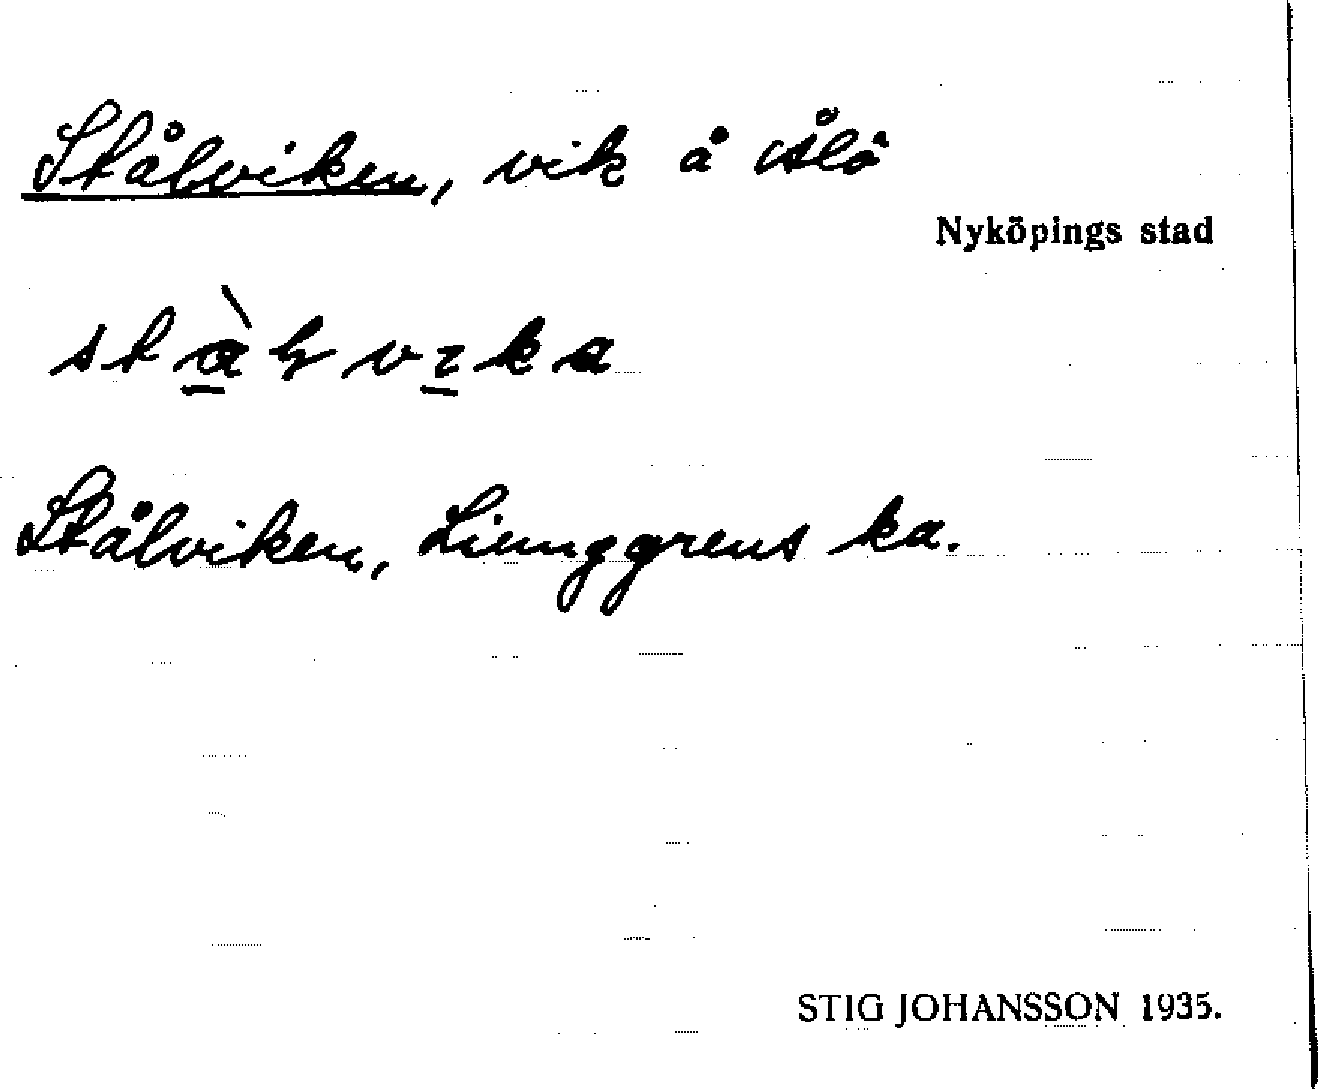 Stålviken, vik å Ålö
Nyköpings stad
Stålviken, Liunggrens ka.
STIG JOHANSSON 1935.